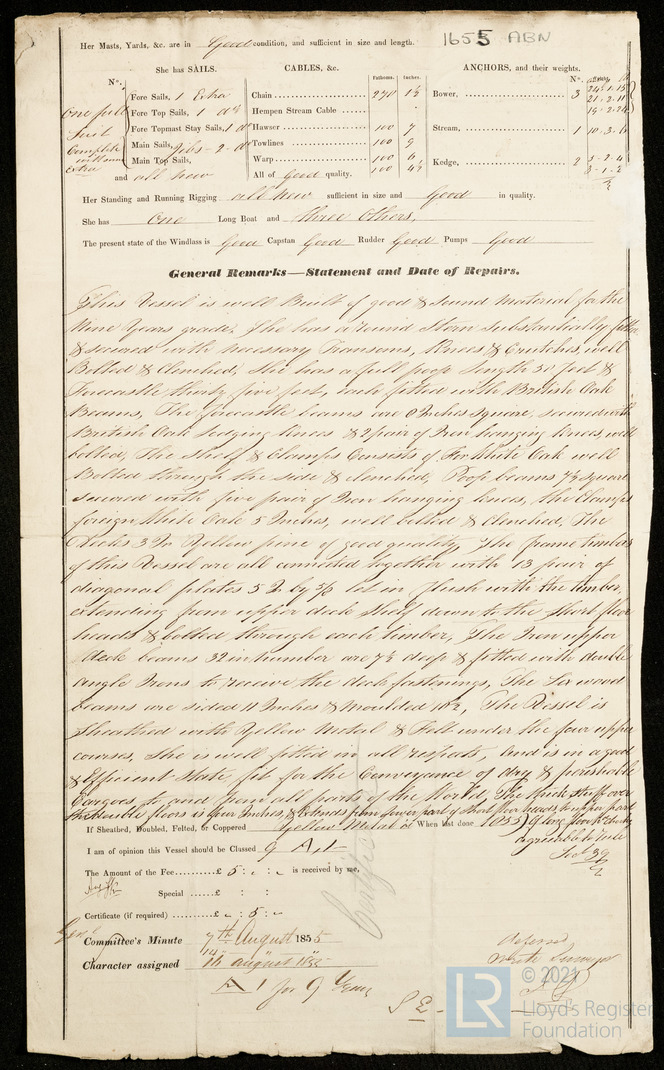 Her Masts, Yards, &c. are in Good condition, and sufficient in size and length.
1655 ABN
She has SAILS.
CABLES, &c.
ANCHORS, and their weights.
N°.
Fathoms.
Inches.
N°.
One full
Suit
Complete
Extra
Fore Sails, 1 Extra
Fore Top Sails, 1 do
Fore Topmast Stay Sails, 1 do
Main Sails, Jibs - 2 - do
Main Top Sails,
and all new
Chain
270
Hempen Stream Cable
Hawser
100 7
Towlines
100 9
Warp
100 6
All of Good quality.
100
Bower,
3
24.1.15
21.2.11
19.2.24
Stream,
1
Kedge,
2
Her Standing and Running Rigging all New sufficient in size and Good in quality.
She has One Long Boat and three Others,
The present state of the Windlass is Good Capstan Good Rudder Good Pumps Good
General Remarks—Statement and Date of Repairs.
This Vessel is well Built of good & sound Material for the
Nine Years grade. She has a round Stern Substantially
& secured with necessary Transoms, Knees & Crutches, well
Bolted & Clenched, She has a full poop length 50 feet &
Forecastle thirty five feet, each fitted with British Oak
Beams, The forecastle beams are 6 Inches square, secured with
British Oak lodging knees & 2 pair of Iron hanging knees, well
bolted, The Shelf & Clamps Consists of For White Oak well
Bolted through the side & clenched, Poop beams 7½ square
secured with five pair of Iron hanging knees, the Clamps
foreign White Oak 5 Inches, well bolted & Clenched, The
Decks 3 In Yellow pine of good quality, The frame timbers
of this Vessel are all connected together with 13 pair of
diagonal plates 5 In by 5/8 let in flush with the timber,
extending from upper deck shelf down to the Short floor
heads & bolted through each timber, The Iron upper
deck beams 32 in number are 7½ deep & fitted with double
angle Irons to receive the deck fastenings, The For wood
beams are sided 11 Inches & Moulded The Vessel is
Sheathed with Yellow Metal & Felt under the four upper
courses, She is well fitted in all respects, and is in a good
& Efficient State fit for the Conveyance of dry & perishable
Cargoes to and from all parts of the World, The thick stuff over
the double floors is four Inches, & Extends from lower part of short floor heads to upper part
If Sheathed, Doubled, Felted, or Coppered Yellow Metal When last done 1855
agreeable to rule
Sec 39
I am of opinion this Vessel should be Classed 9 A, 1
The Amount of the Fee £ 5 : : is received by me,
Special £ : :
Certificate (if required) £ : 5 :
Certific
Committee's Minute 7th August 1855
Character assigned 14 August 1855
A 1 for 9 Years
© 2021
LR
Lloyd's Register
Foundation